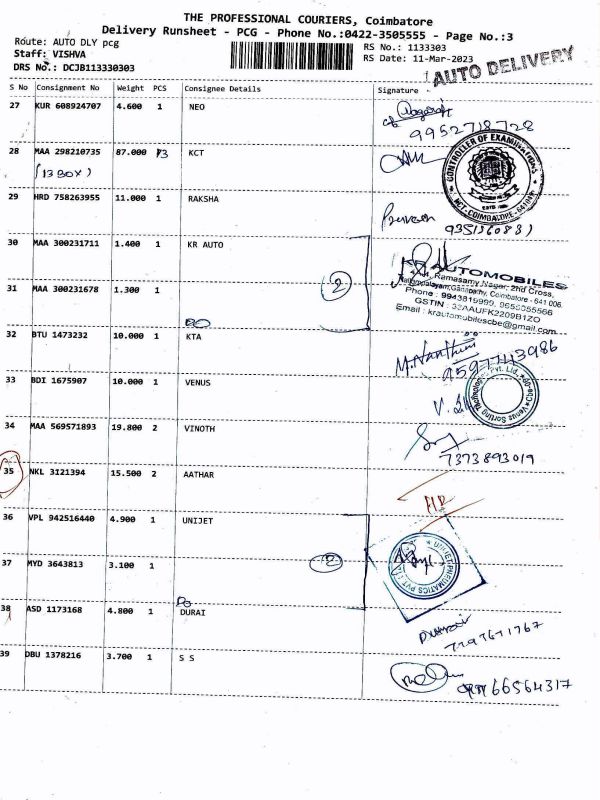 THE PROFESSIONAL COURIERS, Coimbatore
Delivery Runsheet - PCG - Phone No.:0422-3505555 - Page No.:3
Route: AUTO DLY pcg
RS No.: 1133303
Staff: VISHVA
RS Date: 11-Mar-2023
DRS No.: DCJB113330303
AUTO DELIVERY
S No Consignment No Weight PCS Consignee Details Signature
27 KUR 608924707 4.600 1 NEO
9952718728
28 MAA 298210735 87.000 13 KCT
(13 BOX)
CONTROLLER OF EXAMINATIONS
KCT-COIMBATORE-641049
29 HRD 758263955 11.000 1 RAKSHA
Praveen
30 MAA 300231711 1.400 1 KR AUTO
2
KR AUTOMOBILES
Ramasamy Nagar, 2nd Cross,
Ganapathy, Coimbatore - 641 006.
Phone : 9943819999, 9655055566
GSTIN : 33AAUFK2209B1ZO
Email : krautomobilescbe@gmail.com
31 MAA 300231678 1.300 1
32 BTU 1473232 10.000 1 KTA
9597743986
33 BDI 1675907 10.000 1 VENUS
34 MAA 569571893 19.800 2 VINOTH
7373893019
35 NKL 3121394 15.500 2 AATHAR
36 VPL 942516440 4.900 1 UNIJET
2
UNIJET PNEUMATICS PVT
37 MYD 3643813 3.100 1
38 ASD 1173168 4.800 1 DURAI
39 DBU 1378216 3.700 1 S S